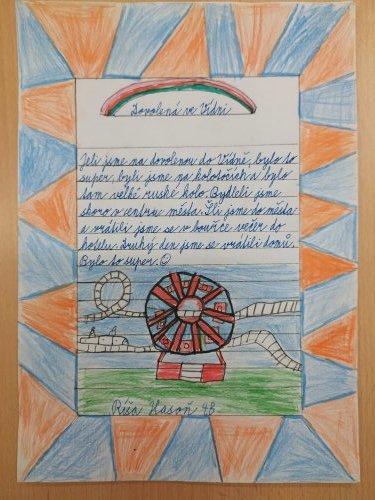 Dovolená ve Vídni
Jeli jsme na dovolenou do Vídně, bylo to
super, byli jsme na kolotočích a bylo
tam velké ruské kolo. Bydleli jsme
skoro v centru města. Šli jsme do města
a vrátili jsme se v bouřce večer do
hotelu. Druhý den jsme se vrátili domů.
Bylo to super. ☺
Ríša Hasoň 4B